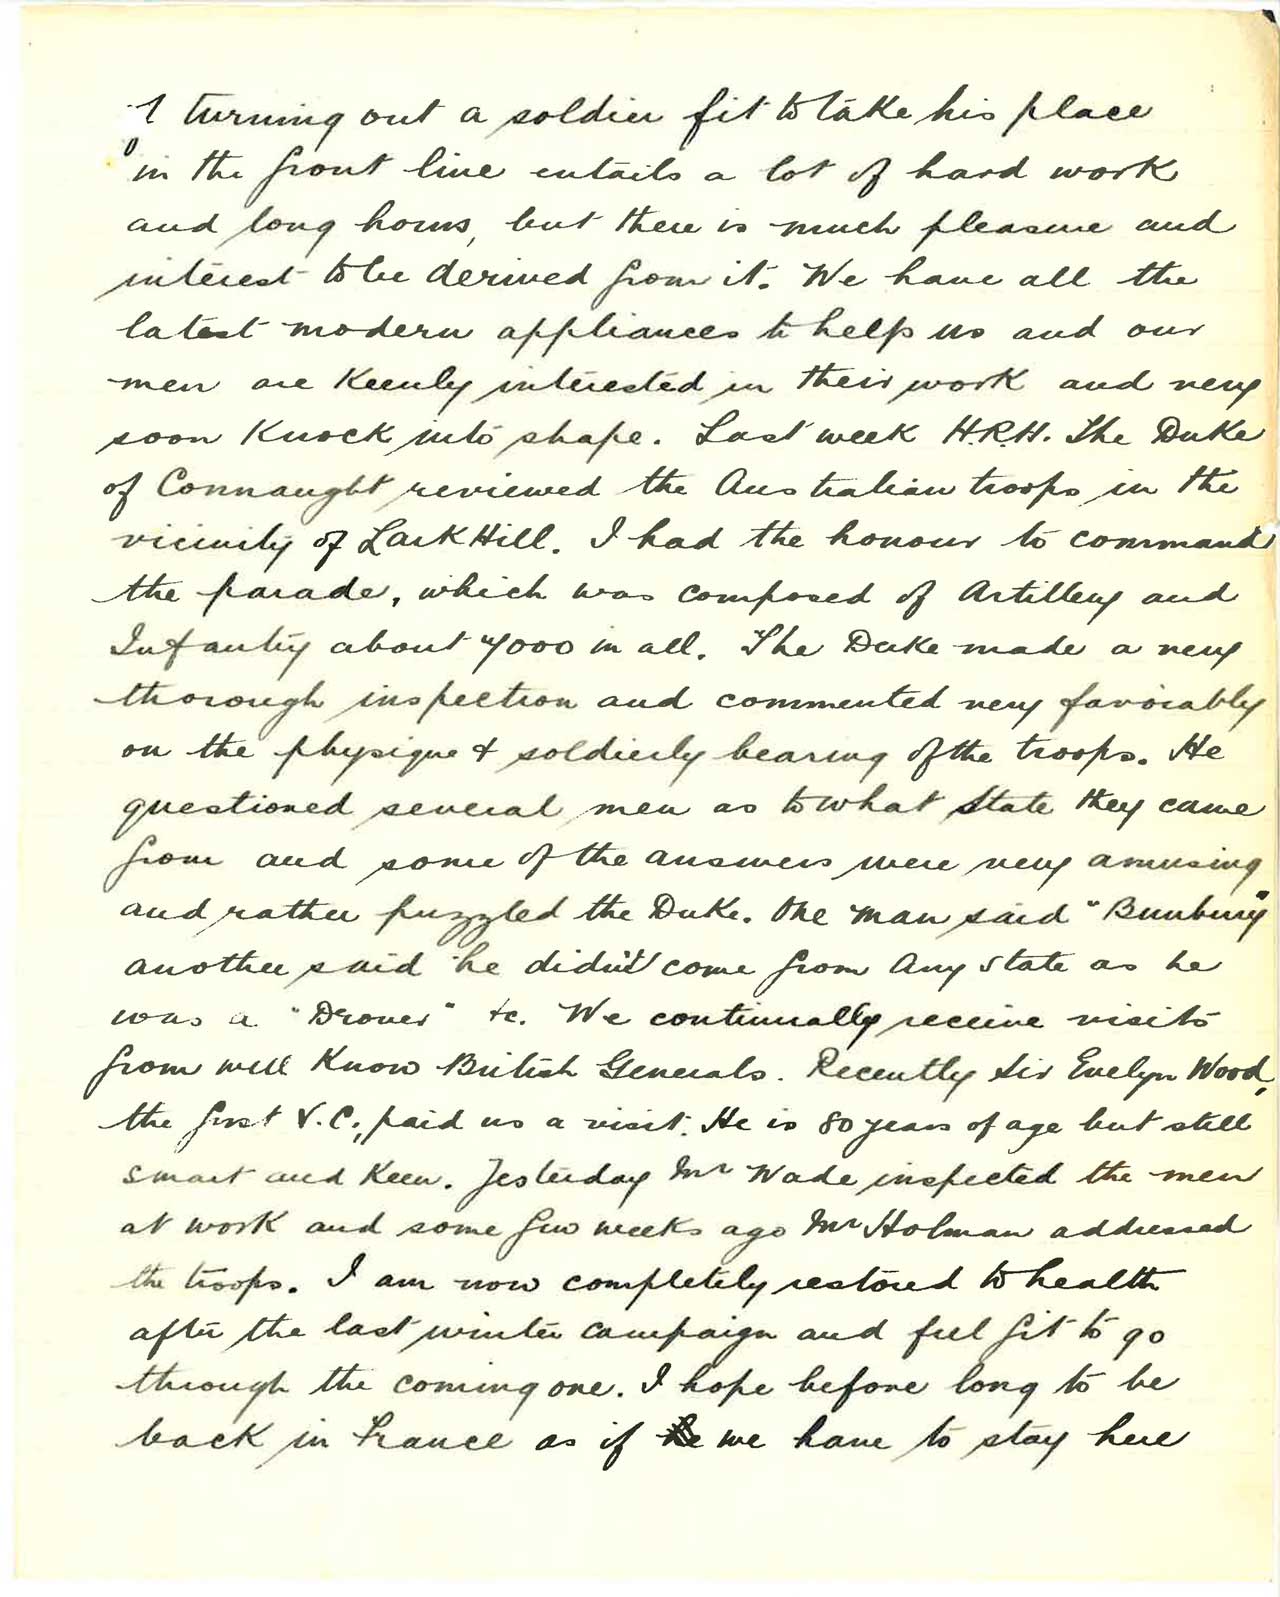 of turning out a soldier fit to take his place
in the front line entails a lot of hard work
and long hours, but there is much pleasure and
interest to be derived from it. We have all the
latest modern appliances to help us and our
men are keenly interested in their work and very
soon knock into shape. Last week H.R.H. The Duke
of Connaught reviewed the Australian troops in the
vicinity of Lark Hill. I had the honour to command
the parade, which was composed of Artillery and
Infantry about 7000 in all. The Duke made a very
thorough inspection and commented very favorably
on the physique & soldierly bearing of the troops. He
questioned several men as to what State they came
from and some of the answers were very amusing
and rather puzzled the Duke. One man said "Bunbury"
another said he didn't come from any state as he
was a "Drover" &c. We continually receive visits
from well know British Generals. Recently Sir Evelyn Wood,
the first V.C., paid us a visit. He is 80 years of age but still
smart and keen. Yesterday Mr Wade inspected the men
at work and some few weeks ago Mr Holman addressed
the troops. I am now completely restored to health
after the last winter campaign and feel fit to go
through the coming one. I hope before long to be
back in France as if we have to stay here